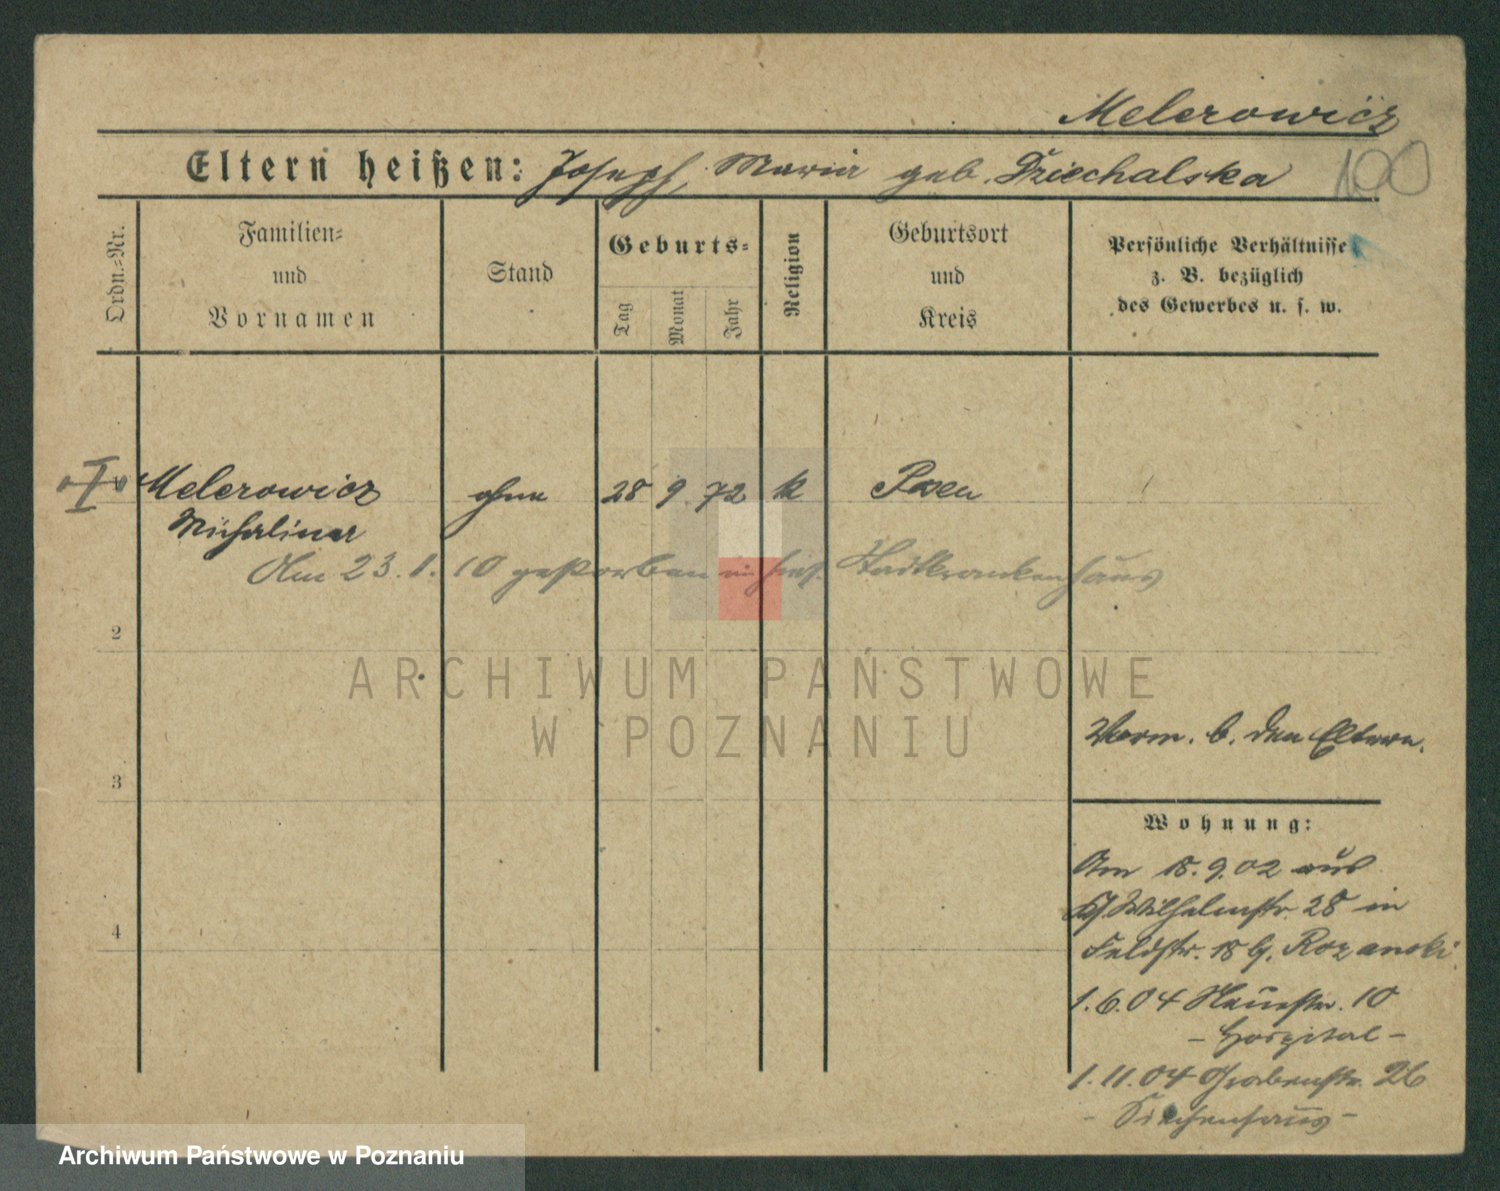 Melerowicz
Eltern heißen: Joseph, Maria geb. Dziechalska
100
Ordn.=Nr.
Familien=
und
Vornamen
Stand
Geburts=
Tag
Monat
Jahr
Religion
Geburtsort
und
Kreis
Persönliche Verhältnisse
z. B. bezüglich
des Gewerbes u. s. w.
Melerowicz ohne 28 9. 72 k Posen
Michalina
Am 23. 1. 10 gestorben im hies. Stadtkrankenhaus
2
ARCHIWUM PAŃSTWOWE
W POZNANIU
Vorm. b. den Eltern.
3
Wohnung:
Am 18. 9. 02 aus
Wilhelmstr. 28 in
4
Feldstr. 18 b. Rozanski
1. 6. 04 Neuestr. 10
- Hospital -
1. 11. 04 Grabenstr. 26
- Siechenhaus -
Archiwum Państwowe w Poznaniu